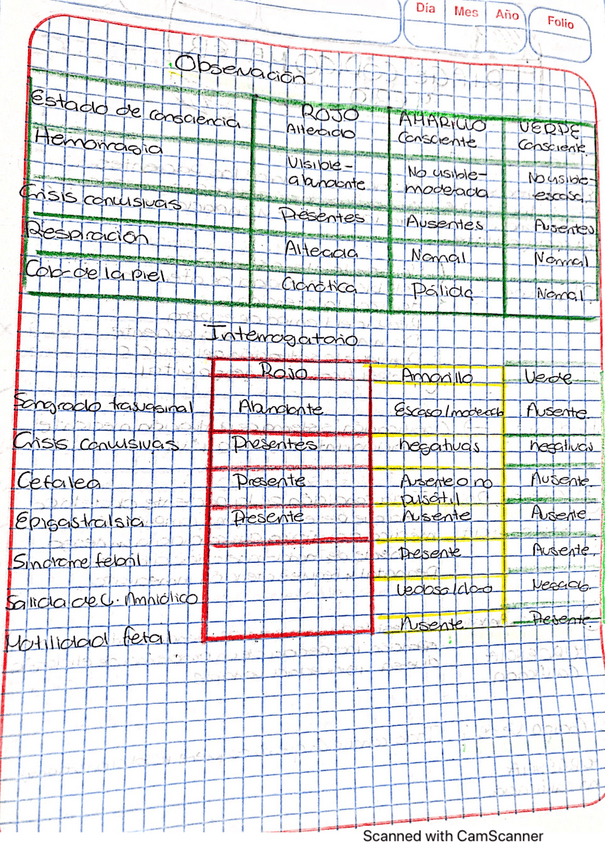 Día Mes Año Folio
Observación
ROJO AMARILLO VERDE
Estado de consciencia Alterado Consciente Consciente
Hemorragia Visible- No visible- No visible-
abundante moderada escasa
Crisis convulsivas Presentes Ausentes Ausentes
Respiración Alterada Normal Normal
Color de la piel Cianótica Pálida Normal
Interrogatorio
Rojo Amarillo Verde
Sangrado transvaginal Abundante Escaso/moderado Ausente
Crisis convulsivas Presentes negativas negativas
Cefalea Presente Ausente o no Ausente
pulsátil
Epigastralgia Presente Ausente Ausente
Síndrome febril Presente Ausente
Salida de L. Amniótico Verdosa/claro Negada
Motilidad fetal Ausente Presente
Scanned with CamScanner